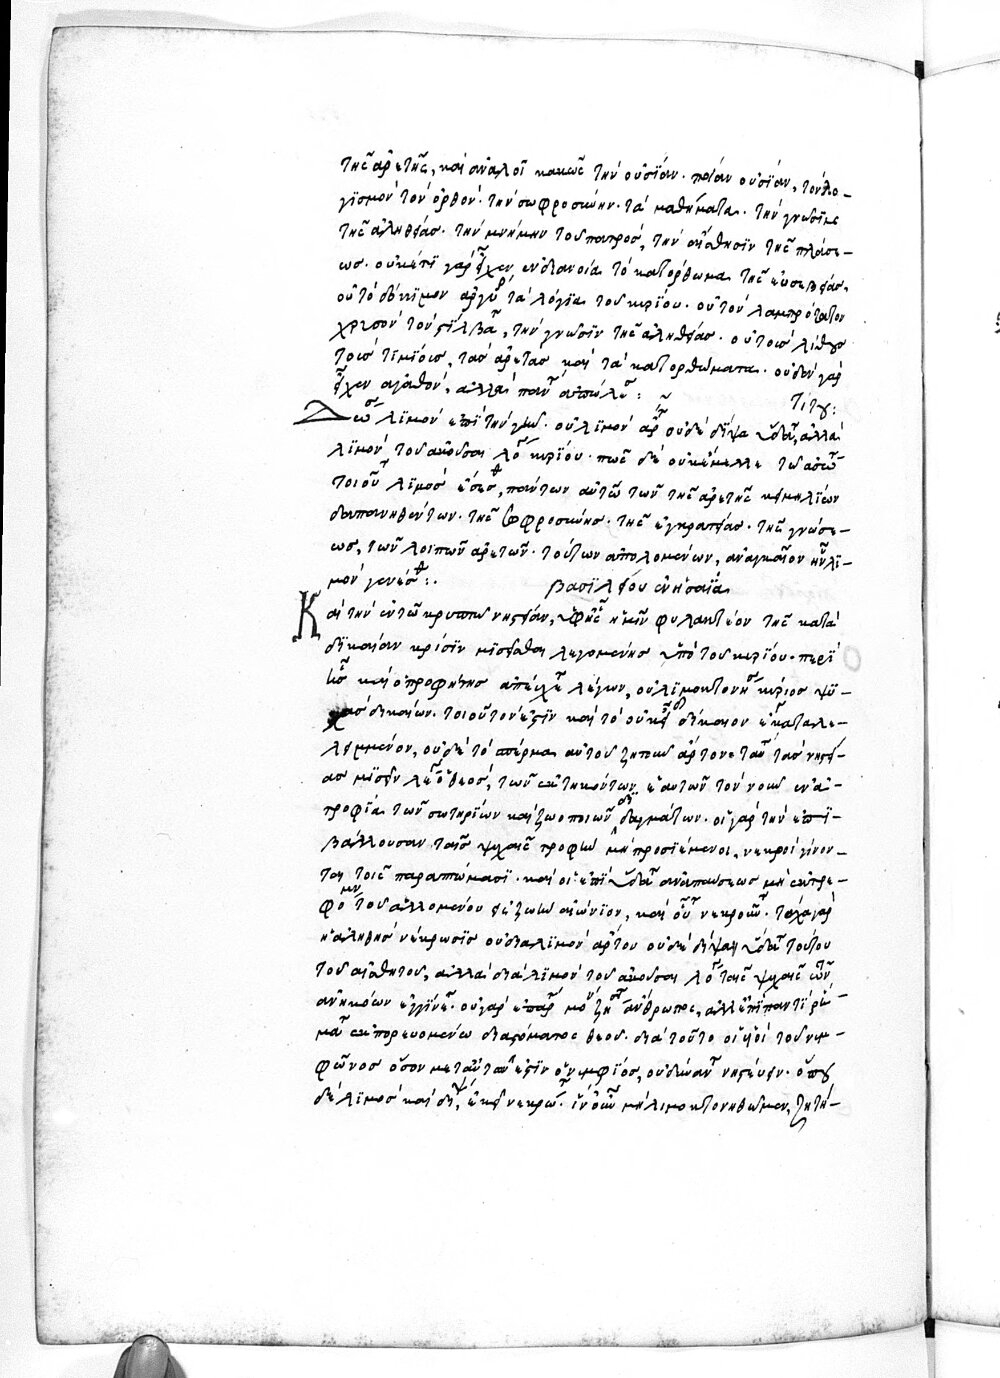 τῆς ἀρετῆς, καὶ ἀναλοῖ κακῶς τὴν οὐσίαν. ποίαν οὐσίαν, τὸν λο-
γισμὸν τὸν ὀρθόν. τὴν σωφροσύνην. τὰ μαθήματα. τὴν γνῶσιν
τῆς ἀληθείας. τὴν μνήμην τοῦ πατρός, τὴν αἴσθησιν τῆς πλάσε-
ως. οὐκέτι γὰρ εἶχεν ἐν διανοία τὸ κατόρθωμα τῆς εὐσεβείας,
οὐ τὸ δόκιμον ἀργύρ τὰ λόγια τοῦ κυρίου. οὐ τὸν λαμπρότατον
χρυσὸν τὸν, τὴν γνῶσιν τῆς ἀληθείας. οὐ τοὺς λίθους
τοὺς τιμίους, τὰς ἀρετὰς καὶ τὰ κατορθώματα. οὐδὲν γὰρ
εἶχεν ἀγαθόν, ἀλλὰ πάντ ἀπώλε:
Τίτου:
λιμὸν ἐπὶ τὴν γῆν. οὐ λιμὸν ἄρτ οὐδὲ δίψα ὕδατ, ἀλλὰ
λιμὸν, τοῦ ἀκοῦσαι λό κυρίου. πῶς δὲ οὐκ ἔμελλε τῷ ἀσώ-
τῳ λιμὸς ἔσεσθ, πάντων αὐτῶ τῶν τῆς ἀρετῆς κειμηλίων
δαπανηθέντων. τῆς σωφροσύνης. τῆς ἐγκρατείας. τῆς γνώσε-
ως, τῶν λοιπῶν ἀρετῶν. τούτων ἀπολομένων, ἀναγκαῖον ἦν λι-
μὸν γενέσθ:.
βασιλείου ἐν ἠσαΐα
Καὶ τὴν ἐν τῶ κρυπτῶ νηστείαν, ἡμῖν φυλακτέον τῆς κατὰ
δικαίαν κρίσιν μισεῖσθαι λεγομένης ὑπὸ τοῦ κυρίου. περὶ
ἧς καὶ ὁ προφήτης λέγων, οὐ λιμοκτονής κύριος ψυ-
χὰς δικαίων. τοιοῦτον ἐστὶν καὶ τὸ οὐκ εἶδ δίκαιον ἐγκαταλε-
λειμμένον, οὐδὲ τὸ σπέρμα αὐτοῦ ζητοῦν ἄρτον. ταύτ τὰς νηστεί-
ας μισεῖν λέγ ὁ θεός, τῶν ἐκτηκόντων ἑαυτῶν τὸν νοῦν ἐν ἀ-
τροφία τῶν σωτηρίων καὶ ζωοποιῶν διδαγμάτων. οἱ γὰρ τὴν ἐπι-
βάλλουσαν ταῖς ψυχαῖς τροφὴν μὴ προσιέμενοι, νεκροὶ γίνον-
ται τοῖς παραπτώμασι. καὶ οἱ ἐπὶ ὕδατ ἀναπαύσεως μὴ ἐκτρε-
φόμν τοῦ ἁλλομένου εἰς ζωὴν αἰώνιον, καὶ οὗτ νεκροῦντ. τάχα γὰρ
ἡ ἀληθὴς νέκρωσις οὐ διὰ λιμὸν ἄρτου οὐδὲ δίψαν ὕδατ τούτου
τοῦ αἰσθητοῦ, ἀλλὰ διὰ λιμὸν τοῦ ἀκοῦσαι λόγ ταῖς ψυχαῖς τῶν
ἀνηκόων ἐγγίνετ. οὐ γὰρ ἐπ ἄρτ μόν ζήσετ ἄνθρωπος, ἀλλ ἐπὶ παντὶ ῥή-
ματ ἐκπορευομένω διὰ στόματος θεοῦ. διὰ τοῦτο οἱ υἱοὶ τοῦ νυμ-
φῶνος ὅσον μετ αὐτῶν ἐστὶν ὁ νυμφίος, οὐ δύναντ νηστεύειν. ὅπου
δὲ λιμὸς καὶ δίψ, ἐκεῖ νεκρω. ἵν οὖν μὴ λιμοκτονηθῶμεν, ζητή-